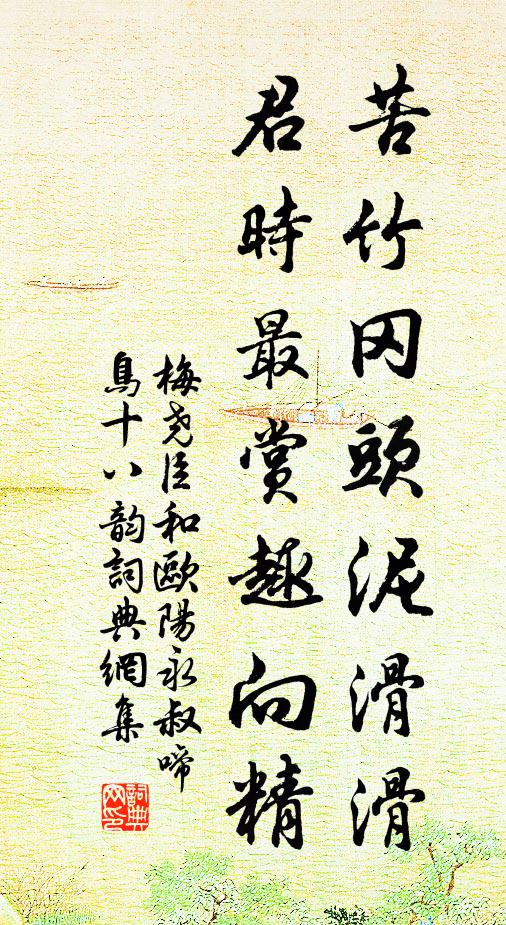 苦竹冈頭泥滑滑
君時最賞趣向精
梅尧臣和歐陽永叔啼
鳥十八韵詞典網集
詞典
网印